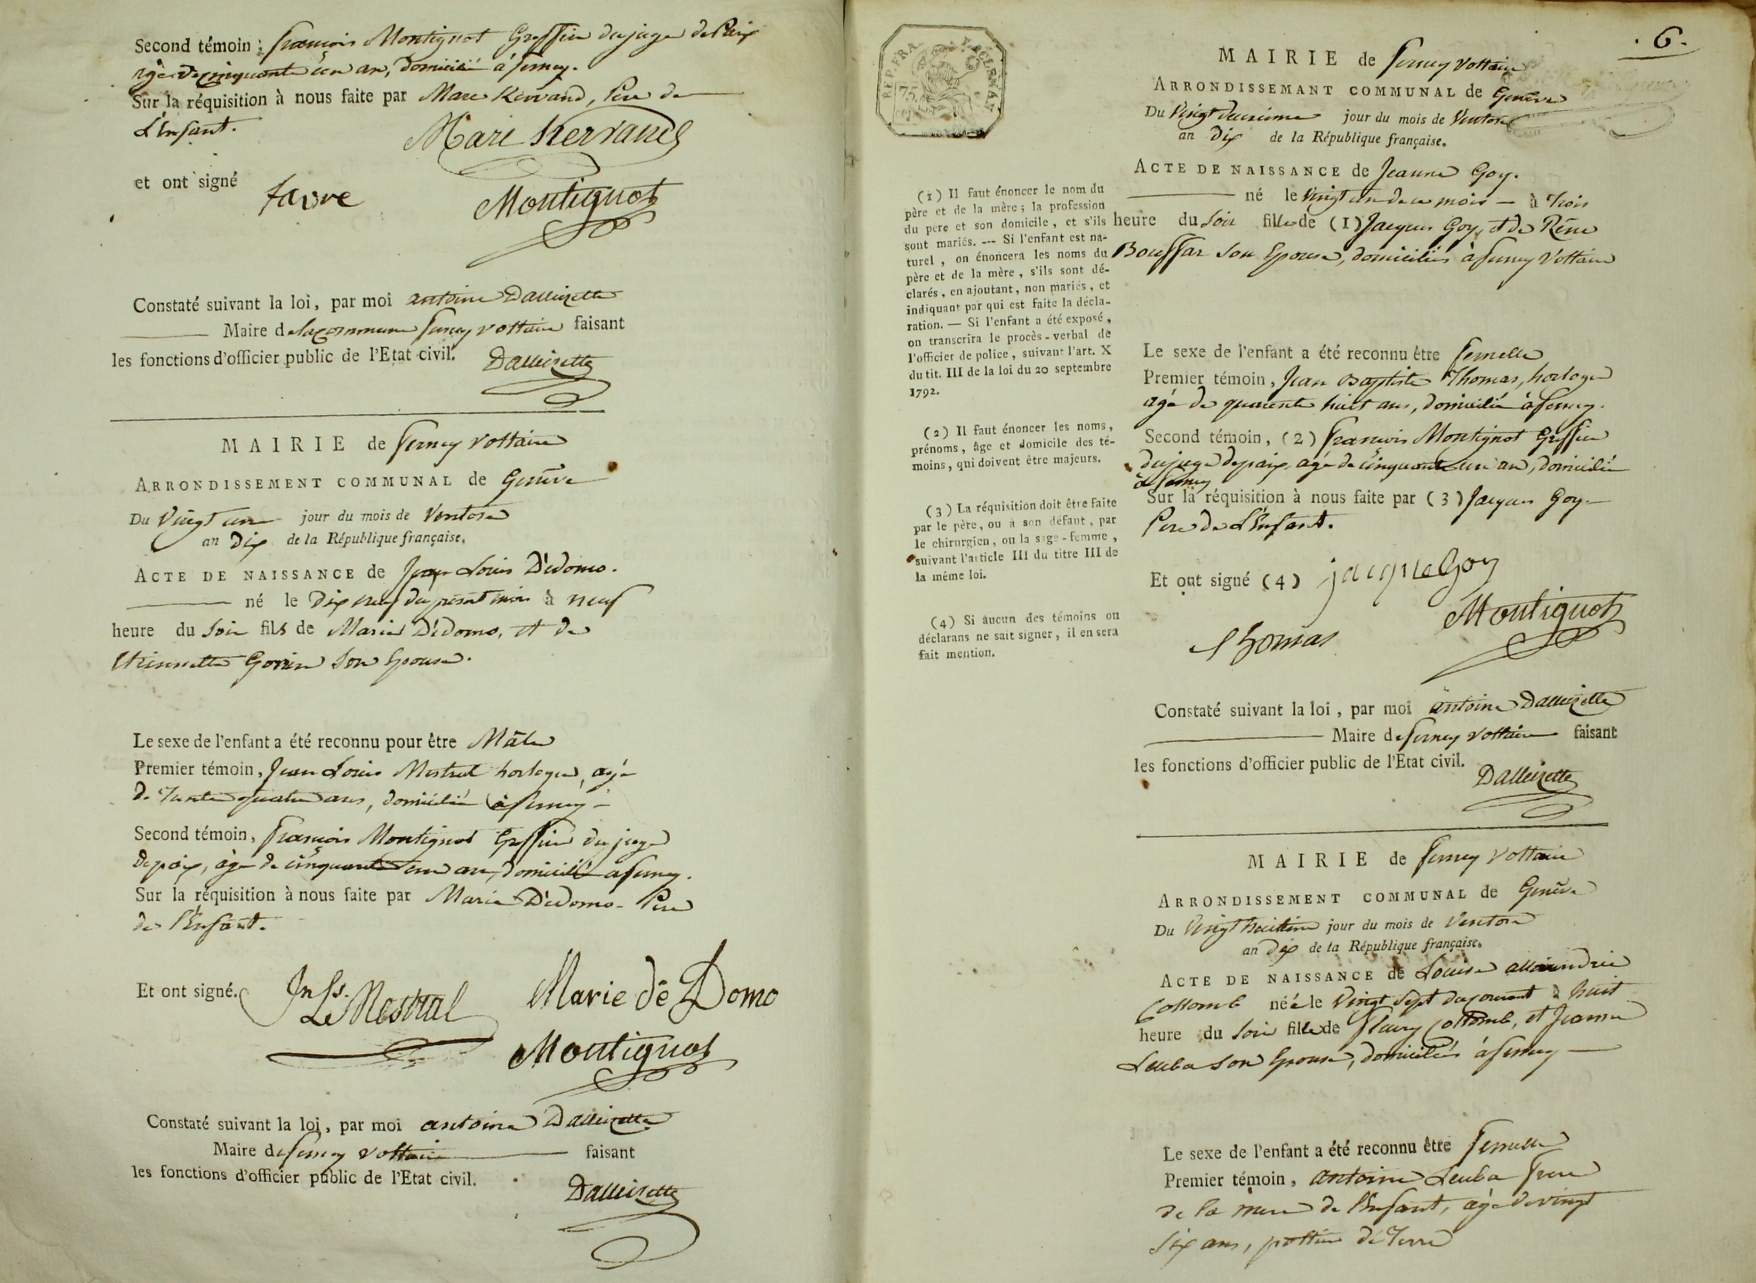 Second témoin, François Montignot Greffier du juge de Paix
âgé de cinquante un an, domicilié à ferney.
Sur la réquisition à nous faite par Marc Kervand, Pere de
L'Enfant.
Marc Kervand
et ont signé
favre
Montignot
Constaté suivant la loi, par moi antoine Dalleizette
Maire de la commune ferney voltaire faisant
les fonctions d'officier public de l'Etat civil.
Dalleizette
MAIRIE de ferney voltaire
ARRONDISSEMENT COMMUNAL de Genêve
Du Vingt un jour du mois de Ventose
an Dix de la République française.
ACTE DE NAISSANCE de Jean Louis Dédomo.
né le Dix neuf du présent mois à neuf
heure du Soir fils de Marie Dédomo, et de
Etiennette son Epouse.
Le sexe de l'enfant a été reconnu pour être Mâle
Premier témoin, Jean Louis Mestral horloger, agé
de trente quatre ans, domicilié à ferney
Second témoin, François Montignot Greffier du juge
de paix, âgé de cinquante un an, domicilié à ferney.
Sur la réquisition à nous faite par Marie Dédomo Pere
de l'Enfant.
Et ont signé.
Jn Ls. Mestral
Marie dê Domo
Montignot
Constaté suivant la loi, par moi antoine Dalleizette
Maire de ferney voltaire faisant
les fonctions d'officier public de l'Etat civil.
Dalleizette
. 6.
REP. FRA.
75
(1) Il faut énoncer le nom du
père et de la mère ; la profession
du père et son domicile, et s'ils
sont mariés. --- Si l'enfant est na-
turel, on énoncera les noms du
père et de la mère, s'ils sont dé-
clarés, en ajoutant, non mariés, et
indiquant par qui est faite la décla-
ration. — Si l'enfant a été exposé,
on transcrira le procès-verbal de
l'officier de police, suivant l'art. X
du tit. III de la loi du 20 septembre
1792.
(2) Il faut énoncer les noms,
prénoms, âge et domicile des té-
moins, qui doivent être majeurs.
(3) La réquisition doit être faite
par le père, ou à son défaut, par
le chirurgien, ou la sage-femme,
suivant l'article III du titre III de
la même loi.
(4) Si aucun des témoins ou
déclarans ne sait signer, il en sera
fait mention.
MAIRIE de ferney voltaire
ARRONDISSEMANT COMMUNAL de Genêve
Du Vingt deuxieme jour du mois de Ventose
an Dix de la République française.
ACTE DE NAISSANCE de Jeanne Goy.
né le vingt un de ce mois à trois
heure du soir fille de (1) Jacques Goy, et de Rêne
Bouffar son Epouse, domiciliés à ferney Voltaire
Le sexe de l'enfant a été reconnu être femelle
Premier témoin, Jean Baptiste Thomas, horloger
agé de quarente huit ans, domicilié à ferney.
Second témoin, (2) François Montignot Greffier
du juge de paix, agé de cinquante un an, domicilié
à ferney
Sur la réquisition à nous faite par (3) Jacques Goy
Pere de L'Enfant.
Et ont signé (4)
jacque Goy
Montignot
Thomas
Constaté suivant la loi, par moi antoine Dalleizette
Maire de ferney voltaire faisant
les fonctions d'officier public de l'Etat civil.
Dalleizette
MAIRIE de ferney Voltaire
ARRONDISSEMENT COMMUNAL de Genêve
Du Vingt huitieme jour du mois de Ventose
an Dix de la République française.
ACTE DE NAISSANCE de Louise
Collomb née le vingt sept du courant à huit
heure du soir fille de fleury Collomb, et Jeanne
Leuba son Epouse, domiciliés à ferney
Le sexe de l'enfant a été reconnu être femelle
Premier témoin, antoine Leuba frere
de la mere de l'Enfant, âgé de vingt
six ans, pottier de Terre